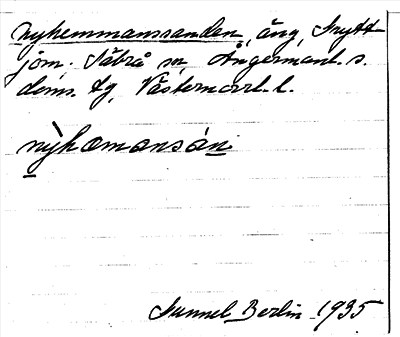 nyhemmanssanden, äng, Nytt-
jom. Säbrå sn, Ångermanl. s.
doms. tg, Västernorrl. l.
nỳhæmansán
Gunnel Berlin 1935